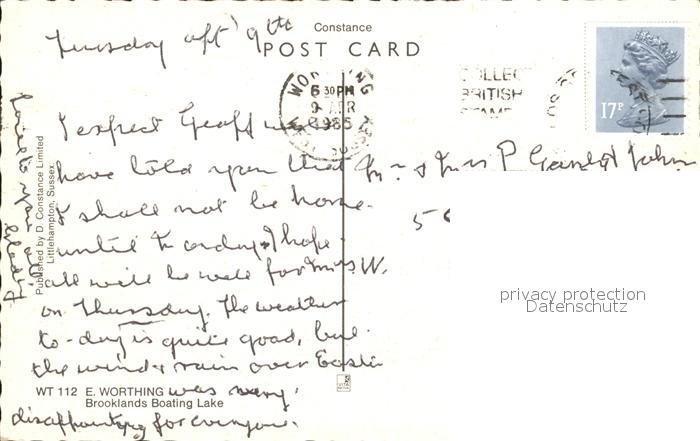 Constance
POST CARD
Tuesday aft' 9th
WORTHING
6 30PM
9 APR
1985
COLLECT
BRITISH
STAMPS
17P
I expect Geoff will
have told you that
I shall not be home
until Friday & I hope
all will be well for Mrs W.
on Thursday. The weather
to-day is quite good, but
the wind & rain over Easter
was very
disappointing for everyone.
Love to you all
Gladys
Mr & Mrs P John
56
Published by D. Constance Limited
Littlehampton, Sussex.
WT 112 E. WORTHING
Brooklands Boating Lake
privacy protection
Datenschutz